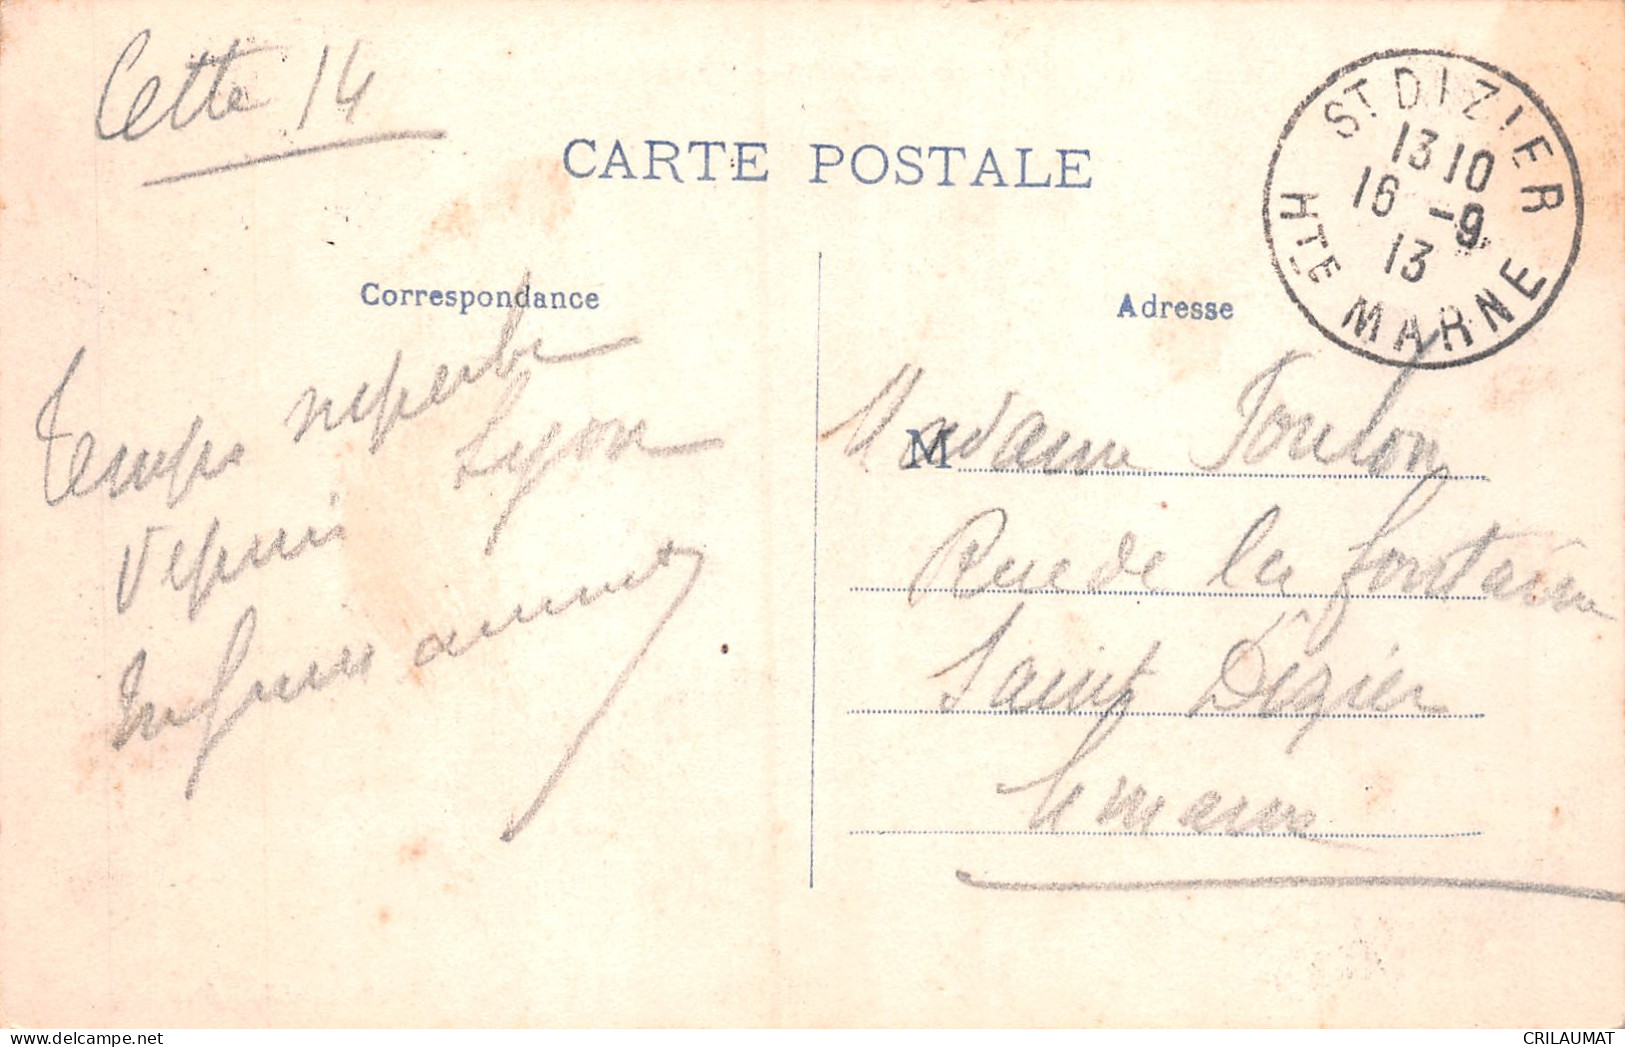 Cette 14
CARTE POSTALE
ST DIZIER
13 10
16 -9
13
HTE MARNE
Correspondance
Adresse
Temps superbe
depuis Lyon
Madame Toulon
Rue de la fontaine
Saint Dizier
Hte marne
CRILAUMAT